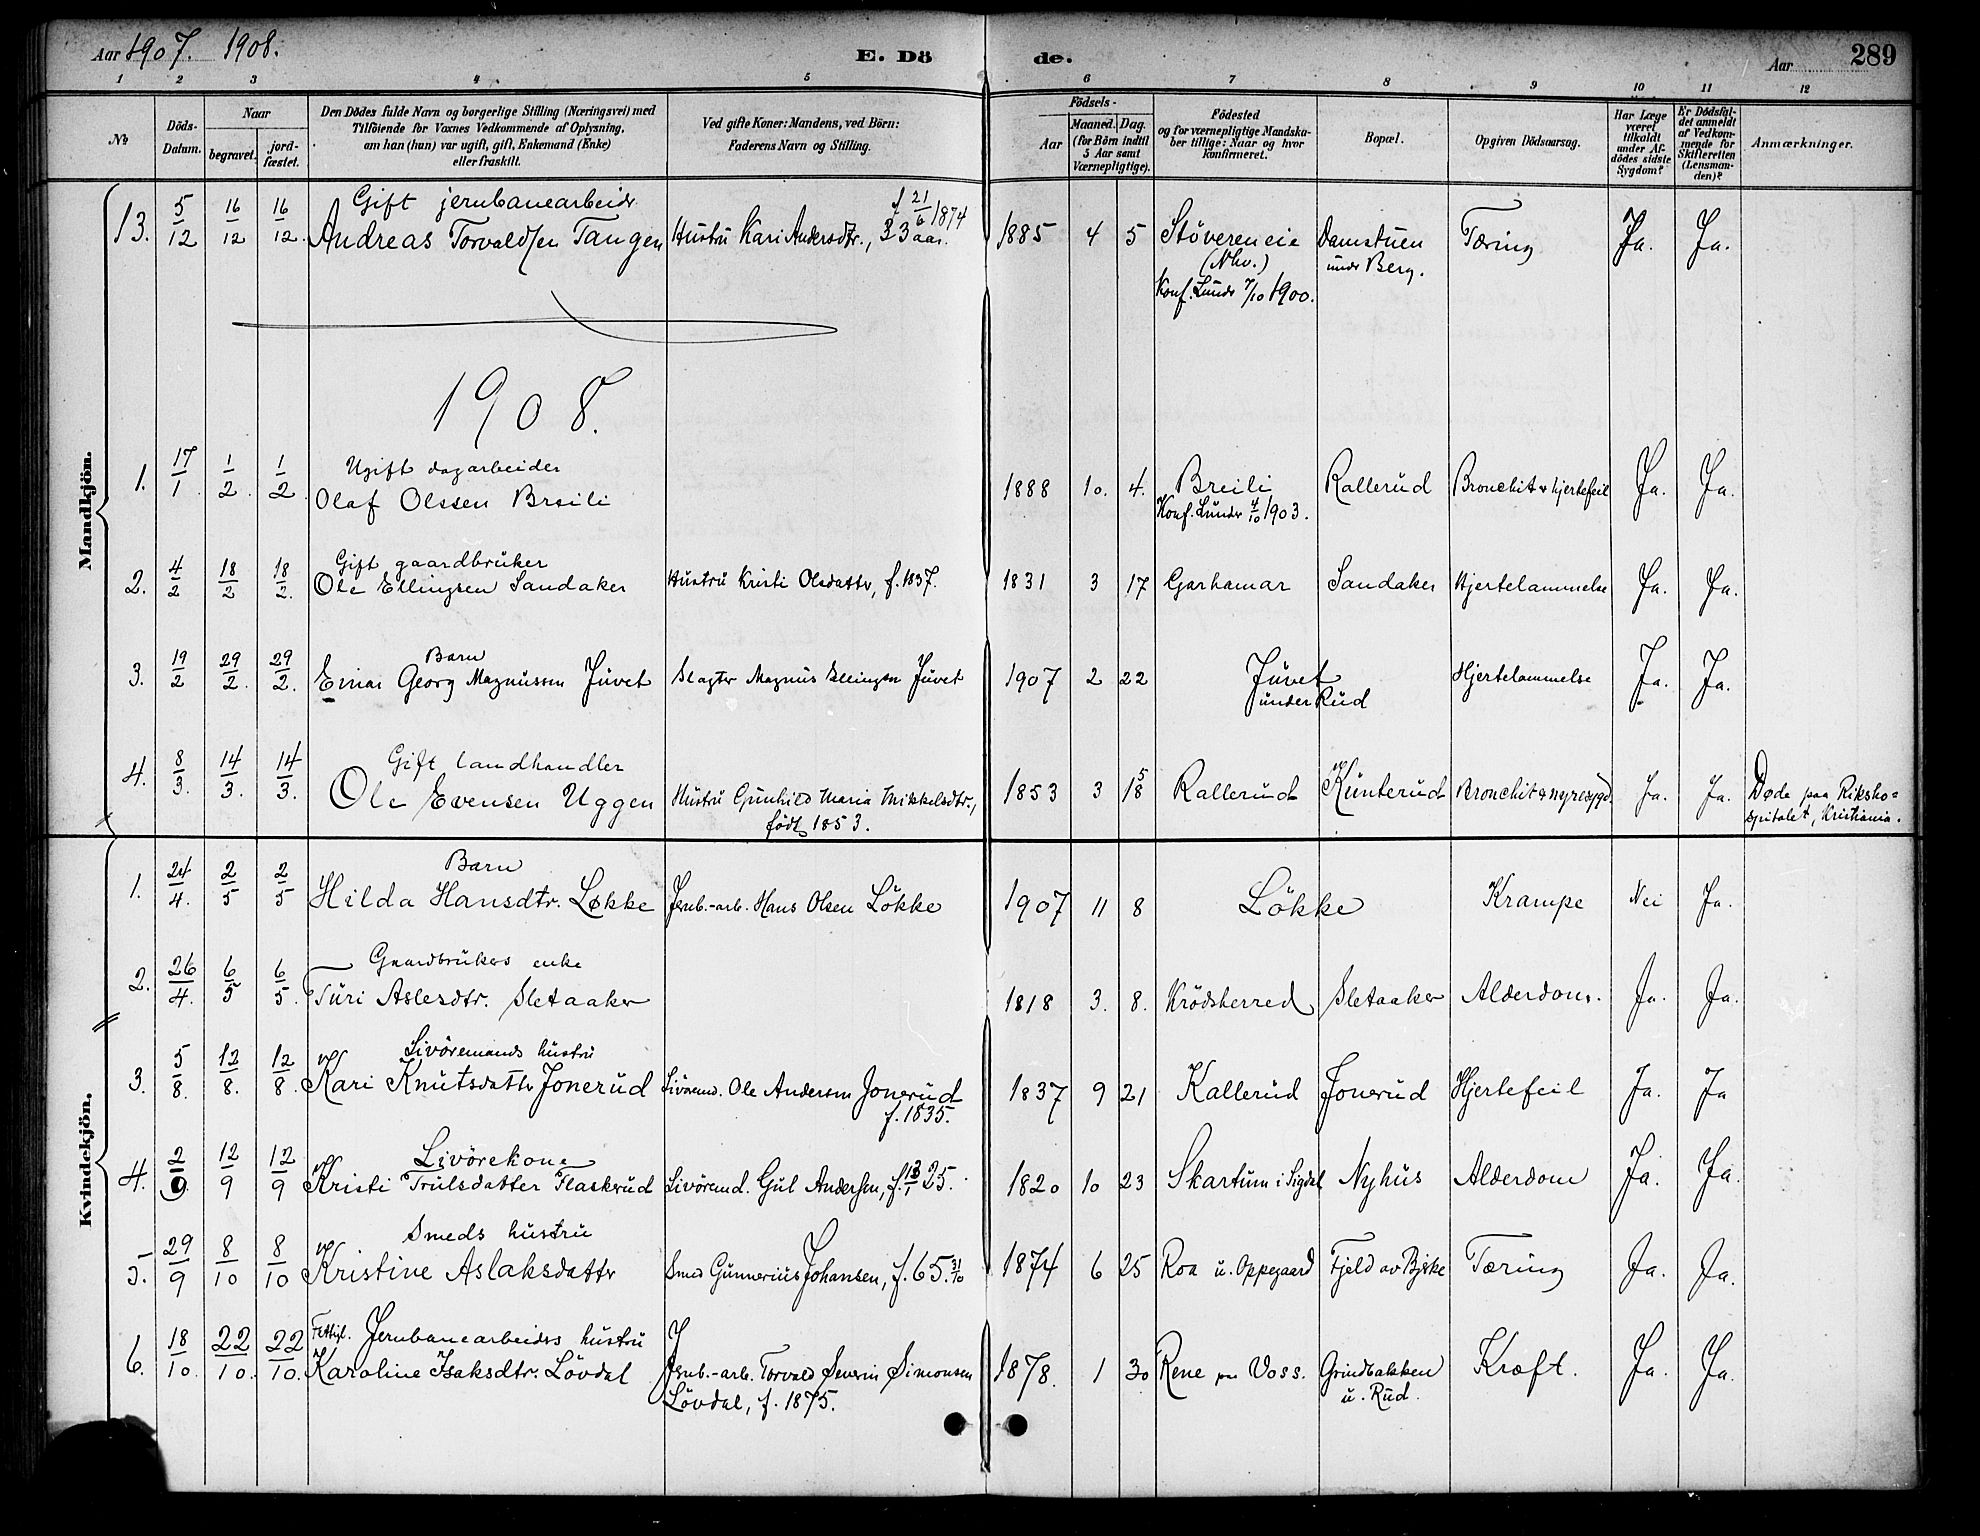 Aar 1907. 1908.
E. Dö
de.
Aar
289
1 2 3 4 5 6 7 8 9 10 11 12
No.
Döds-
Datum.
Naar
begravet.
jord-
fæstet.
Den Dödes fulde Navn og borgerlige Stilling (Næringsvei) med
Tilföiende for Voxnes Vedkommende af Oplysning,
om han (hun) var ugift, gift, Enkemand (Enke)
eller fraskilt.
Ved gifte Koner: Mandens, ved Börn:
Faderens Navn og Stilling.
Födsels-
Aar
Maaned. Dag.
(for Börn indtil
5 Aar samt
Værnepligtige).
Födested
og for værnepligtige Mandska-
ber tillige: Naar og hvor
konfirmeret.
Bopæl.
Opgiven Dödsaarsag.
Har Læge
været
tilkaldt
under Af-
dödes sidste
Sygdom?
Er Dödsfal-
det anmeldt
af Vedkom-
mende for
Skifteretten
(Lensman-
den)?
Anmærkninger.
Mandkjön.
Gift jernbanearbeidr f 21/6 1874
13. 5/12 16/12 16/12. Andreas Torvaldsen Tangen Hustru Kari Andersdtr., 33 aar. 1885 4 5 Stöveren eie Damstuen Tæring Ja. Ja.
(Nhv.) undr Berg.
Konf. Lundr 7/10 1900.
1908.
Ugift dagarbeider
1. 17/1. 1/2. 1/2. Olaf Olssen Breili 1888 10. 4. Breili Rallerud Bronchit & hjertefeil Ja. Ja.
Konf. Lundr 4/10 1903.
Gift gaardbruker
2. 4/2 18/2 18/2. Ole Ellingsen Sandaker Hustru Kristi Olsdattr, f. 1837. 1831 3 17 Garhamar Sandaker Hjertelammelse Ja. Ja.
Barn
3. 19/2 29/2. 29/2. Einar Georg Magnussen Juvet Slagter Magnus Ellingsen Juvet 1907 2 22 Juvet Hjertelammelse Ja. Ja.
under Rud
Gift landhandler
4. 8/3. 14/3. 14/3. Ole Evensen Uggen Hustru Gunhild Maria Mikkelsdtr., 1853 3 Rallerud Kunterud Bronchit & nyresygd. Ja. Ja. Døde paa Riksho=
født 1853. spitalet, Kristiania.
Kvindekjön.
Barn
1. 24/4. 2/5 2/5 Hilda Hansdtr. Løkke Jernb.-arb. Hans Olsen Lökke 1907 11 8 Lökke Krampe Nei Ja.
Gaardbrukers enke
2. 26/4. 6/5 6/5. Turi Aslesdtr. Sletaaker 1818 3. 8. Krödsherred Sletaaker Alderdom. Ja. Ja.
Livöremands hustru
3. 5/8. 12/8. 12/8. Kari Knutsdattr Jonerud Livöremd. Ole Andersen Jonerud 1837 9 21 Kallerud Jonerud Hjertefeil Ja. Ja
f. 1835.
Livörekone
4. 2/9. 12/9 12/9 Kristi Trulsdatter Flaskerud Livöremd. Gul Andersen, f. 13/1 25. 1820 10 23 Skartum i Sigdal Nyhus Alderdom Ja. Ja.
Smeds hustru
5. 29/9 8/10 8/10 Kristine Aslaksdattr Smed Gunnerius Johansen, f. 65. 31/10 1874 6 25 Roa u. Oppegaard Fjeld av Bjøke Tæring Ja. Ja.
Fattigl. Jernbanearbeidrs hustru
6. 18/10. 22/10. 22/10. Karoline Isaksdtr. Lövdal Jernb.-arb. Torvald Severin Simonsen 1878. 1 30 Rene paa Voss. Grindbakken Kræft. Ja. Ja.
Lövdal, f. 1875. u. Rud.